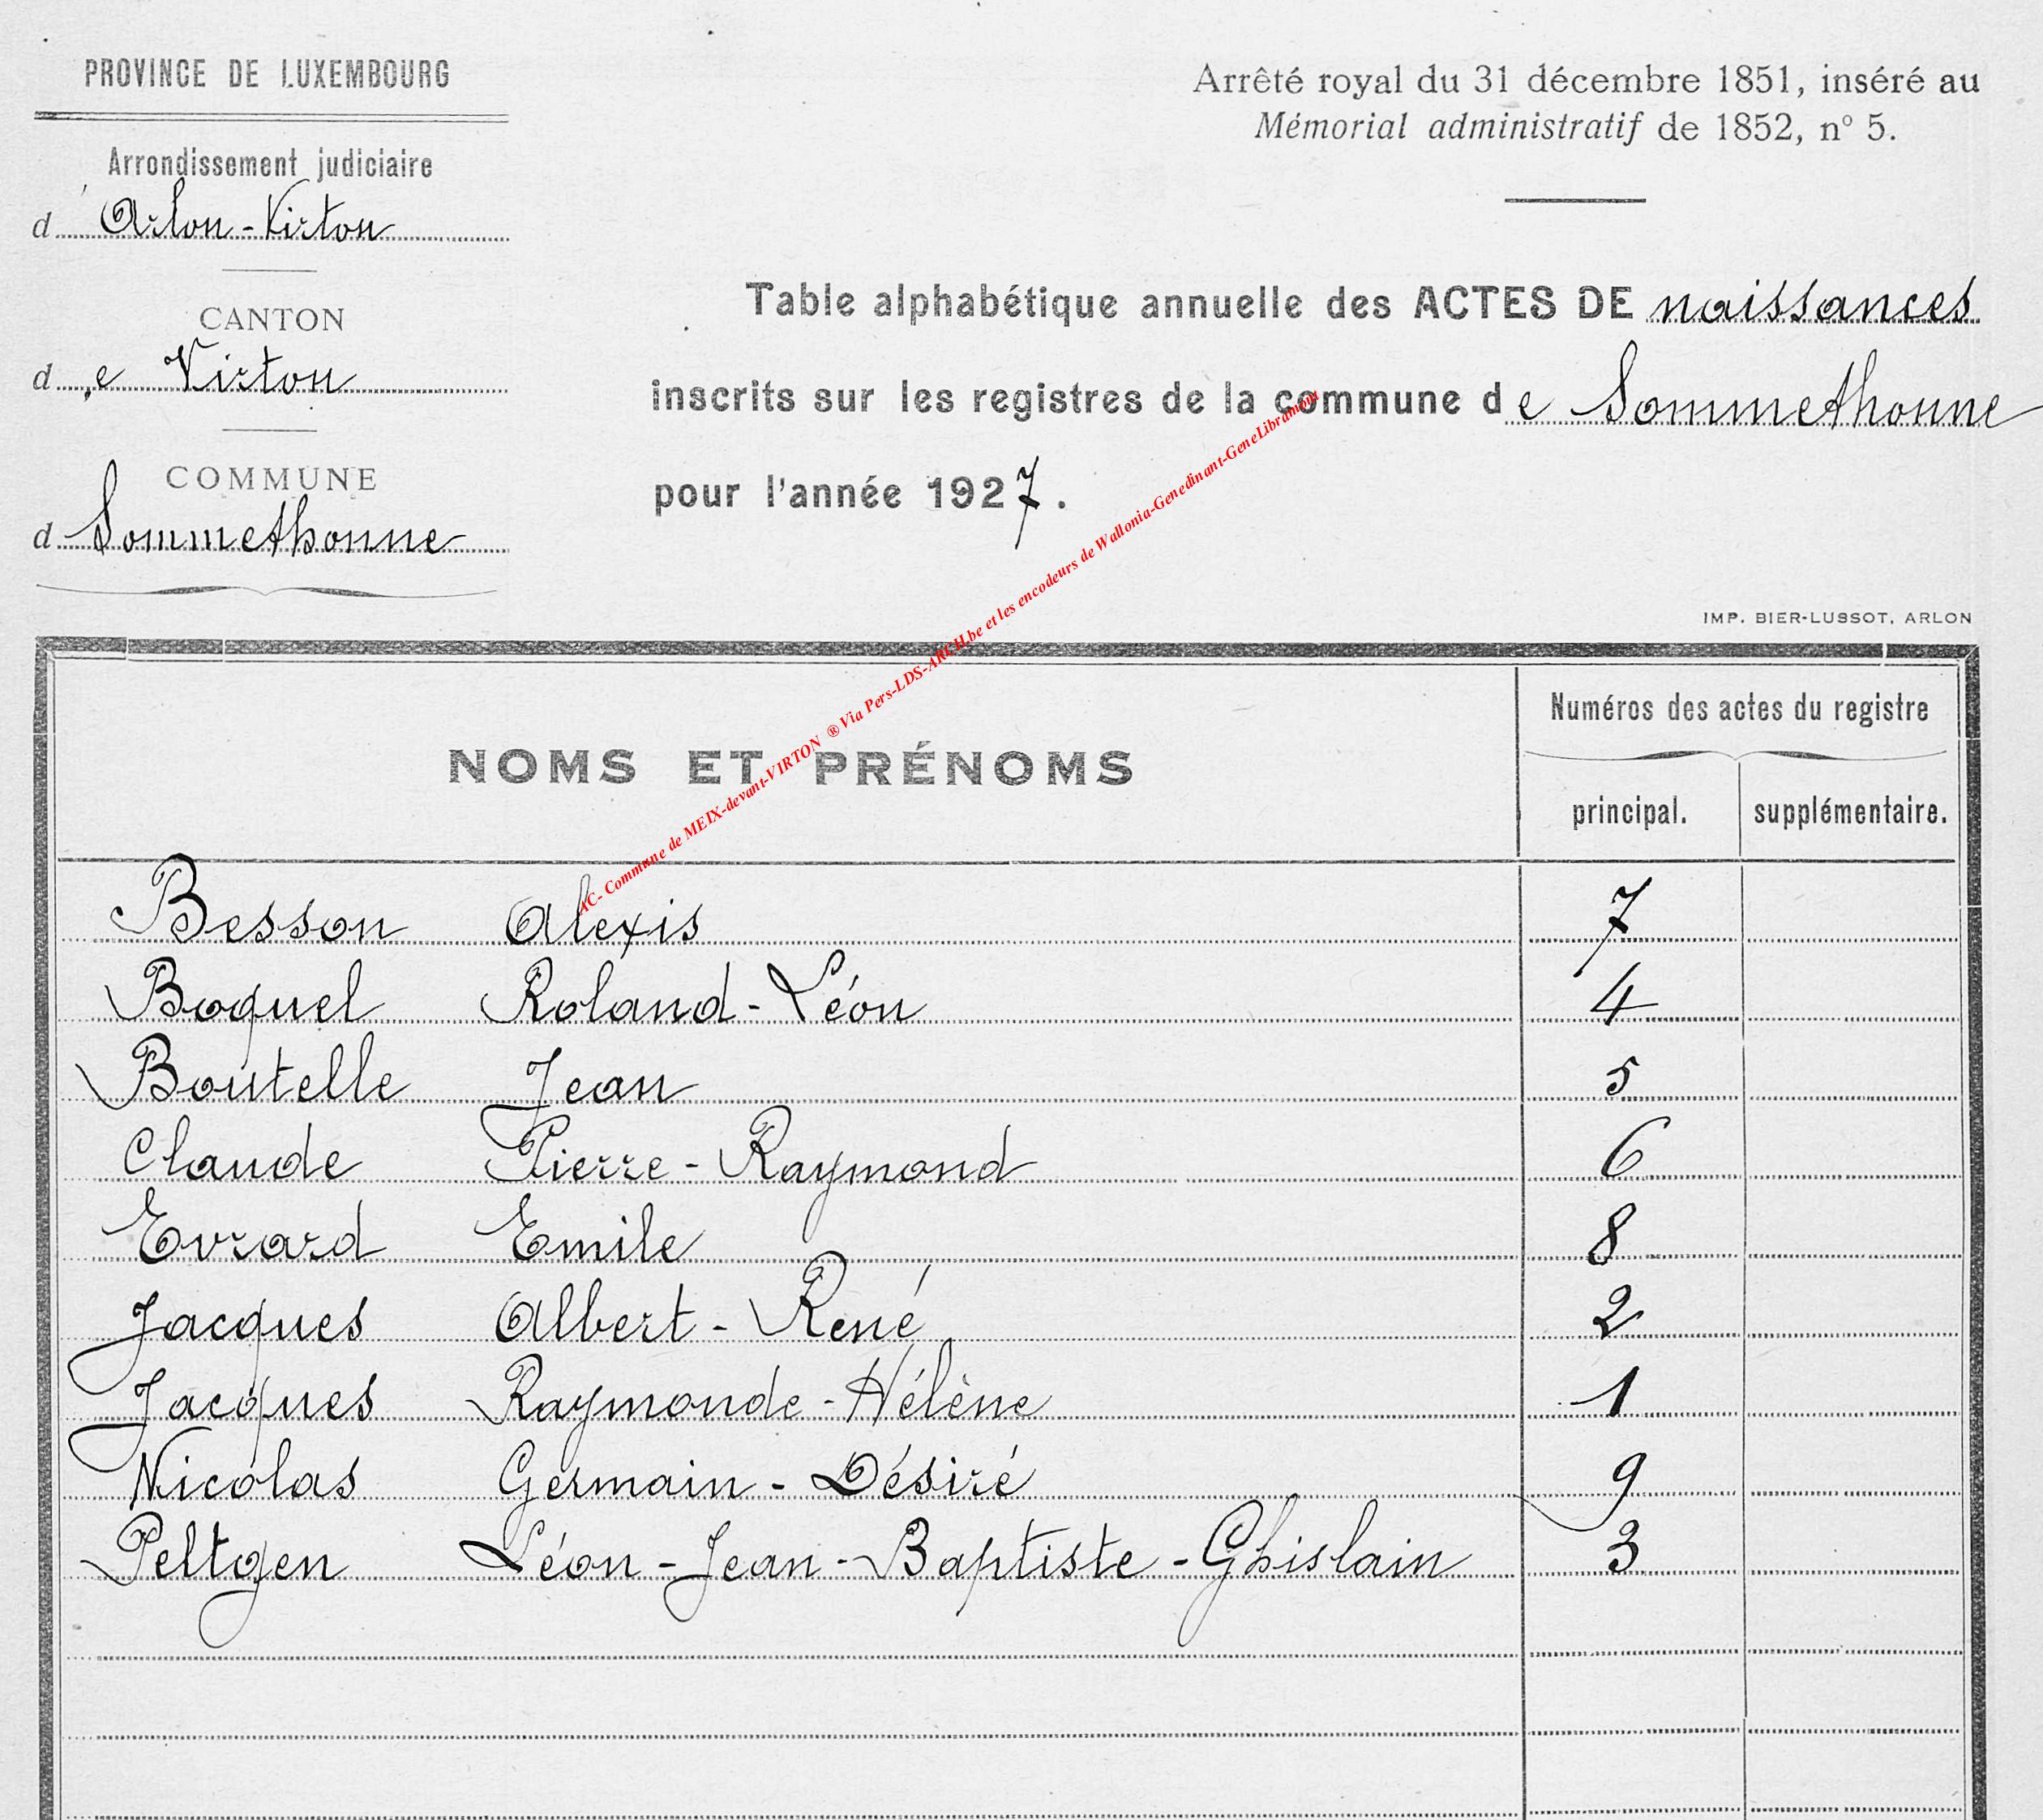 PROVINCE DE LUXEMBOURG
Arrondissement judiciaire
d' Arlon-Virton
CANTON
de Virton
COMMUNE
d Sommethonne
Arrêté royal du 31 décembre 1851, inséré au
Mémorial administratif de 1852, n° 5.
Table alphabétique annuelle des ACTES DE naissances
inscrits sur les registres de la commune de Sommethonne
pour l'année 1927.
IMP. BIER-LUSSOT, ARLON
AC- Commune de MEIX-devant-VIRTON ® Via Pers-LDS-ARCH.be et les encodeurs de Wallonia-Genedinant-GeneLibramont
NOMS ET PRÉNOMS
Numéros des actes du registre
principal. supplémentaire.
Besson Alexis 7
Boquel Roland-Léon 4
Boutelle Jean 5
Claude Pierre-Raymond 6
Evrard Emile 8
Jacques Albert-René 2
Jacques Raymonde-Hélène 1
Nicolas Germain-Désiré 9
Peltgen Léon-Jean-Baptiste-Ghislain 3